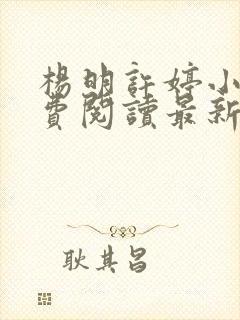 楊明許婷小
費閱讀最新
耿其昌